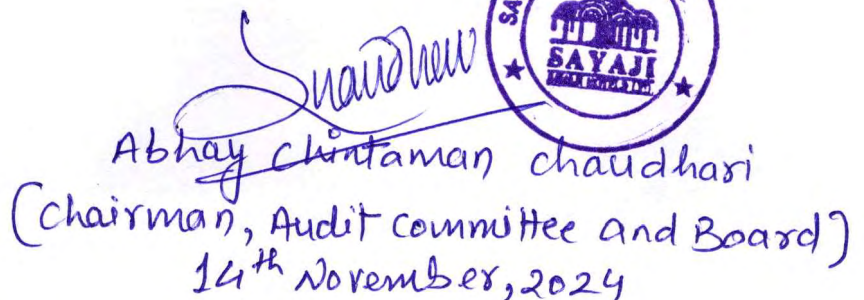 SA
SAYAJI
Abhay Chintaman chaudhari
(Chairman, Audit committee and Board)
14th November, 2024